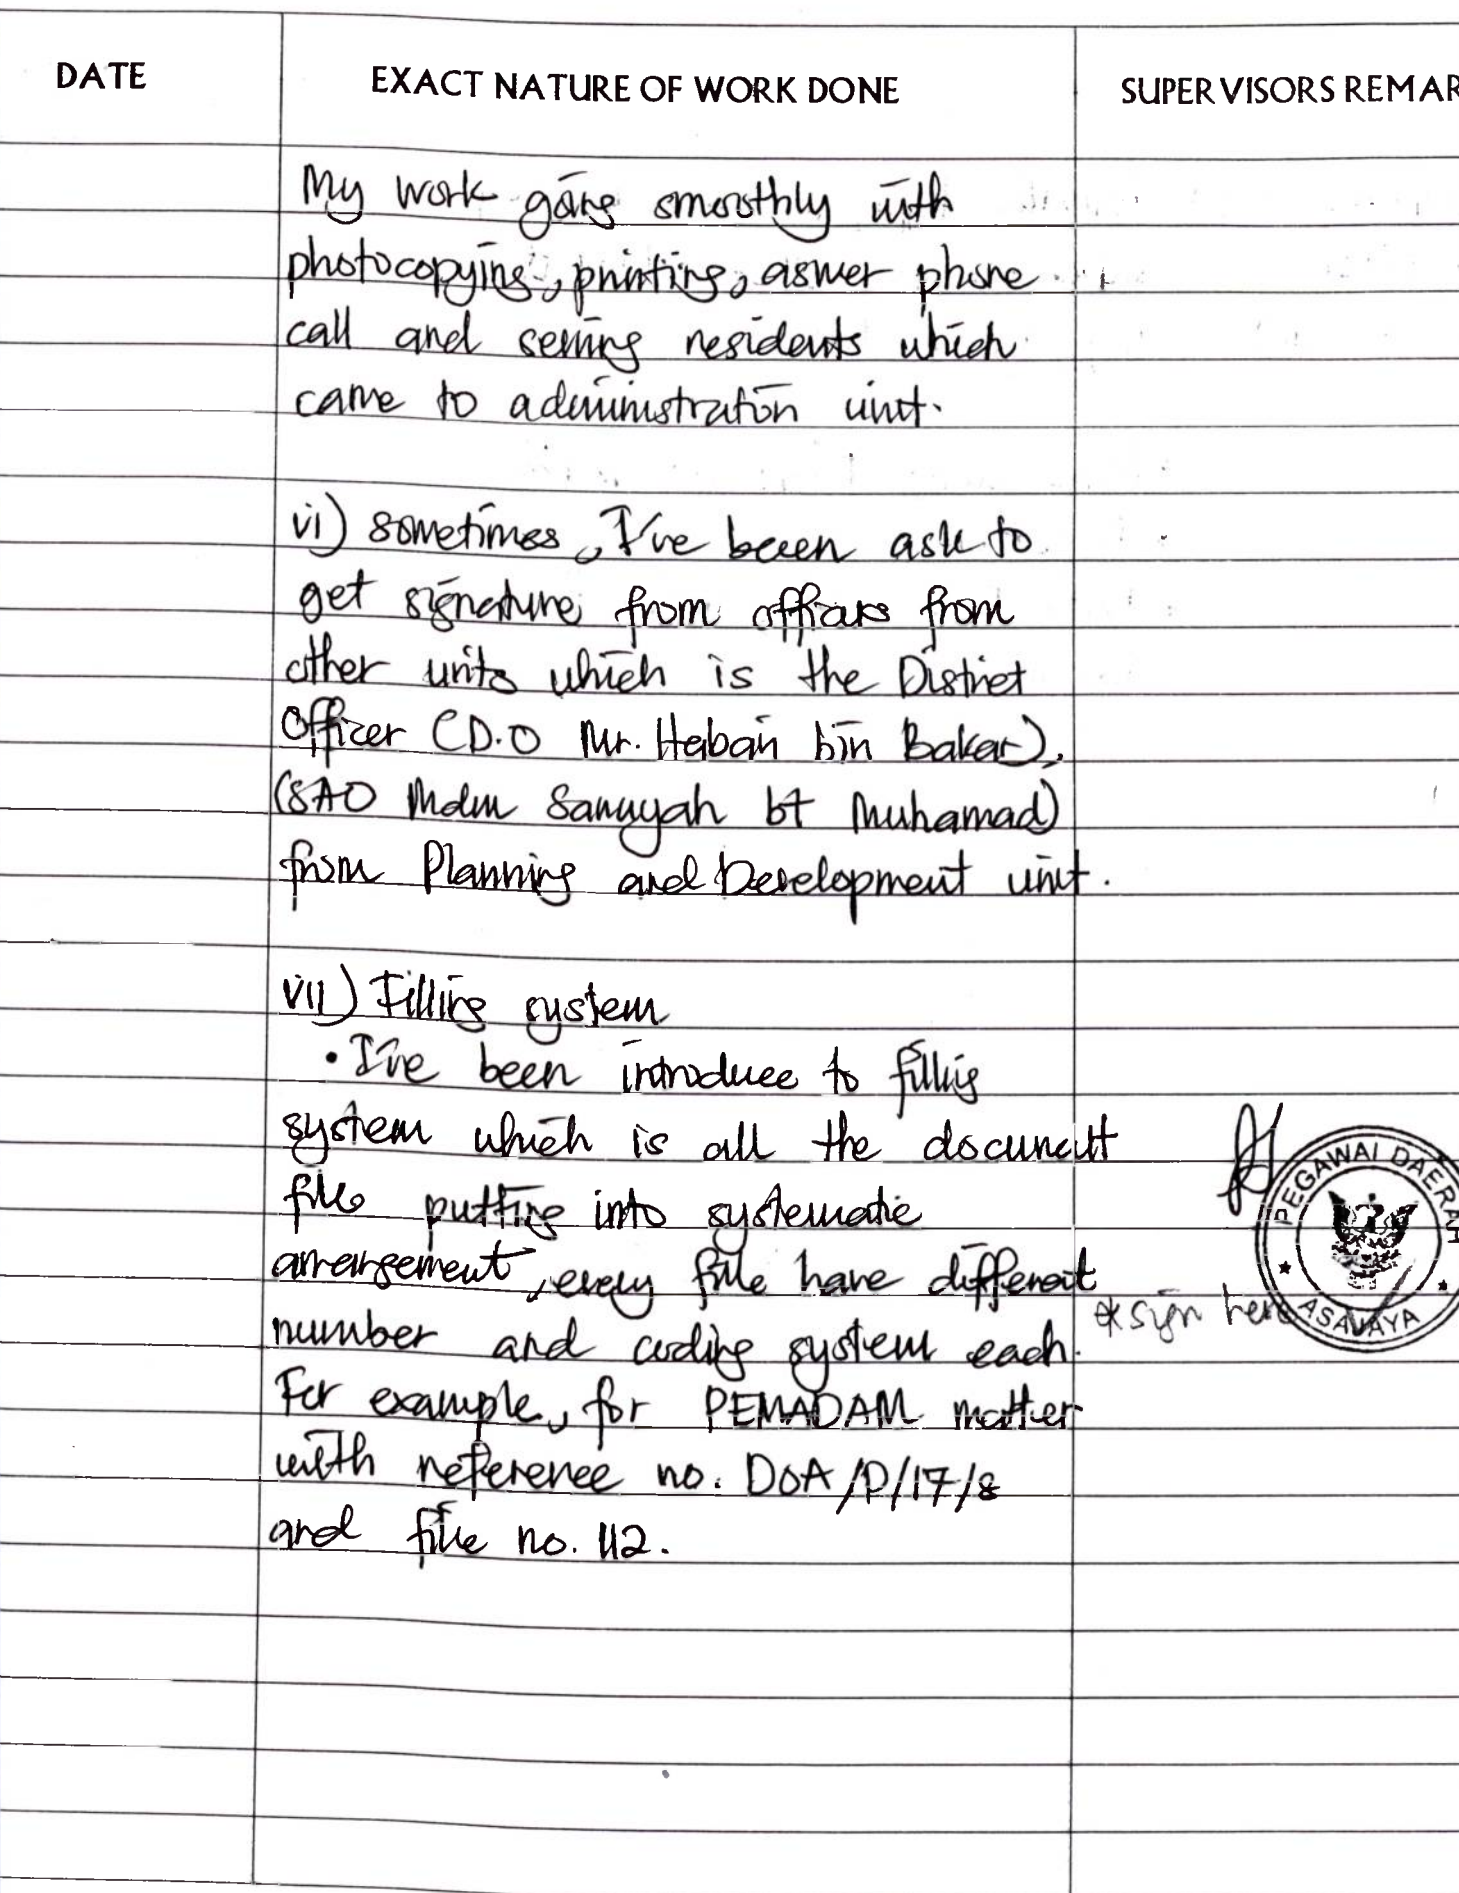 DATE EXACT NATURE OF WORK DONE SUPERVISORS REMAR
My work going smoothly with
photocopying, printing, aswer phone
call and serving residents which
came to administration unit.
vi) sometimes, I've been ask to
get signature from officers from
other units which is the District
Officer (D.O Mr. Haban bin Bakar),
(SAO Mdm Sanuyah bt Muhamad)
from Planning and Development unit.
vii) Filling system
• I've been introduce to filling
system which is all the document
file putting into systematic
arrangement, every file have different
number and coding system each.
For example, for PEMADAM matter
with reference no. DOA/P/17/8
and file no. 112.
PEGAWAI DAERAH
* sign here
ASAJAYA